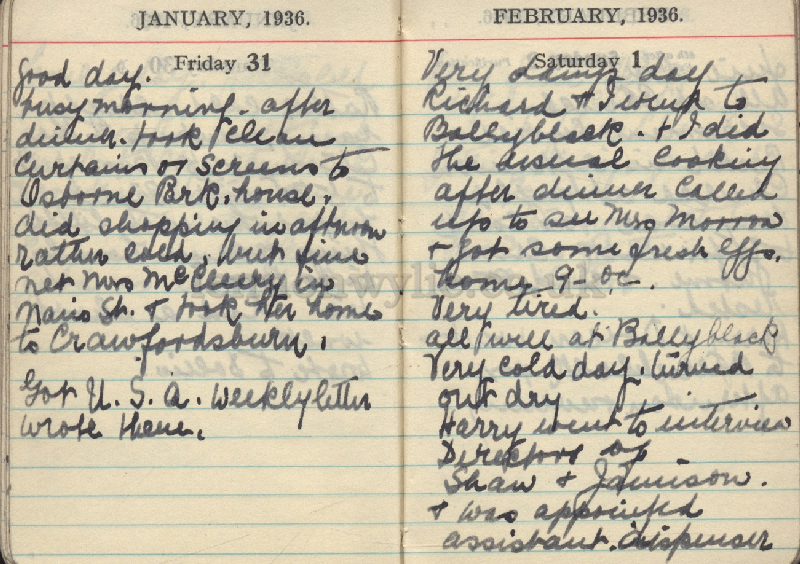 JANUARY, 1936.
Friday 31
Good day.
busy morning. after
dinner. took clean
Curtains or Screens to
Osborne Prk. house.
did shopping in afternoon
rather cold, but fine
met Mrs McCleery in
Main St. & took her home
to Crawfordsburn.
Got U. S. A. weekly letter
wrote them.
FEBRUARY, 1936.
Saturday 1
Very damp day
Richard & I went to
Ballyblack. & I did
the usual Cooking
after dinner Called
up to see Mrs Morrow
& got some fresh eggs.
home 9-0c.
Very tired.
all well at Ballyblack
Very cold day. turned
out dry
Harry went to interview
Directors of
Shaw & Jamison.
& was appointed
assistant. dispenser